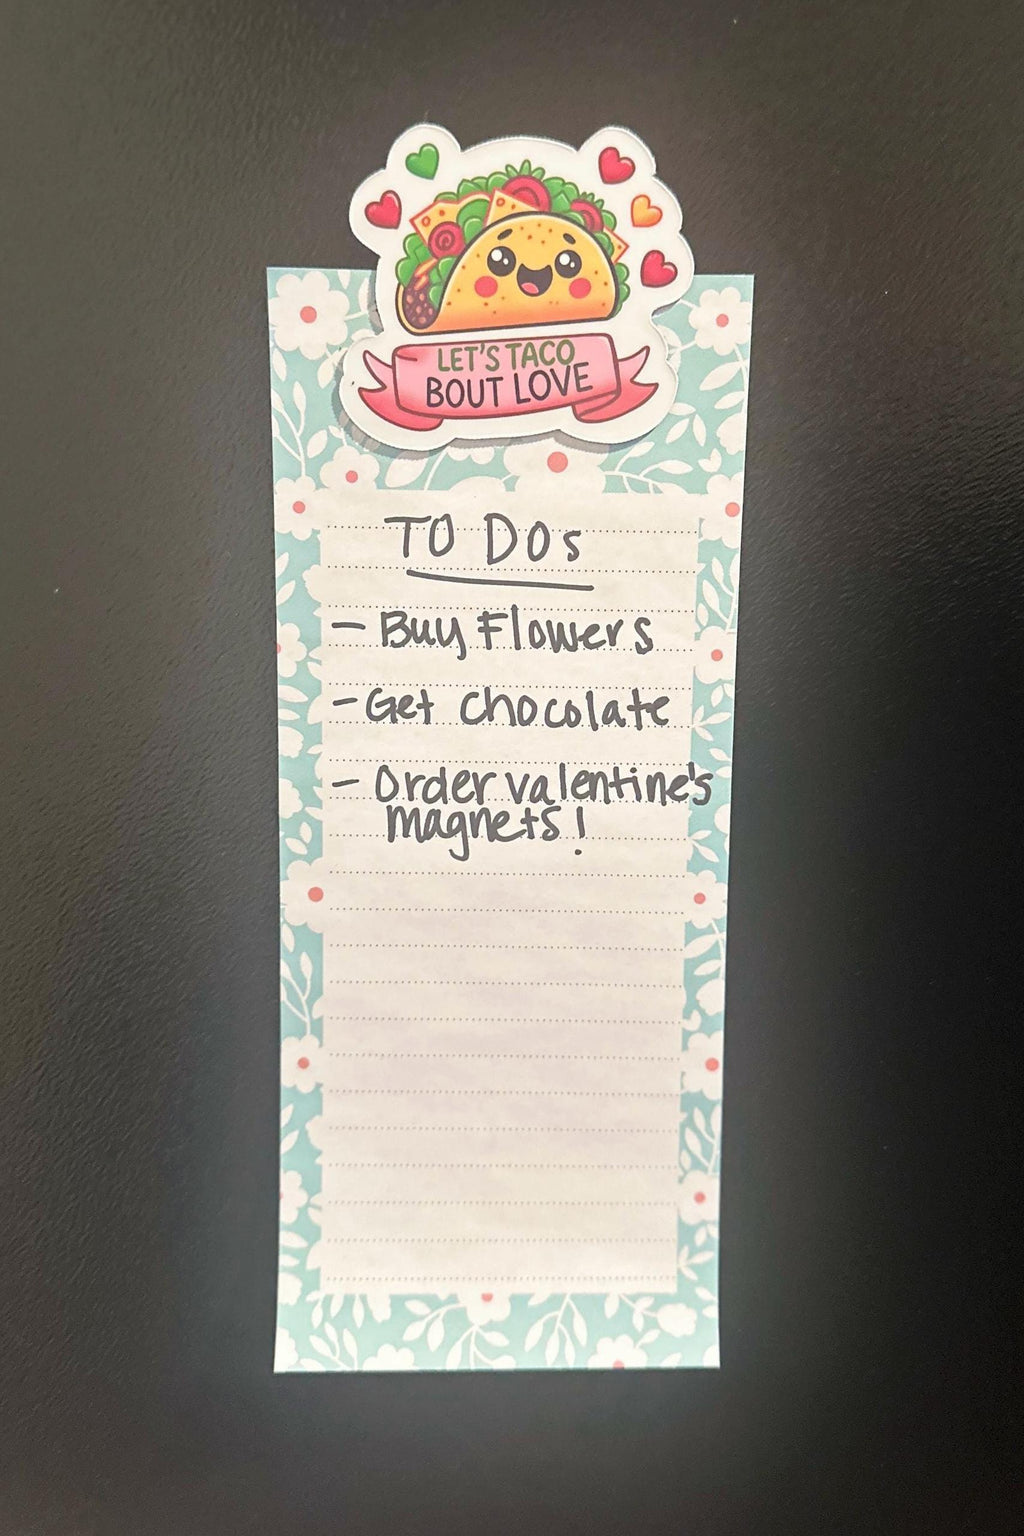 LET'S TACO
BOUT LOVE
TO DOs
- Buy Flowers
- Get chocolate
- Order valentine's
magnets!